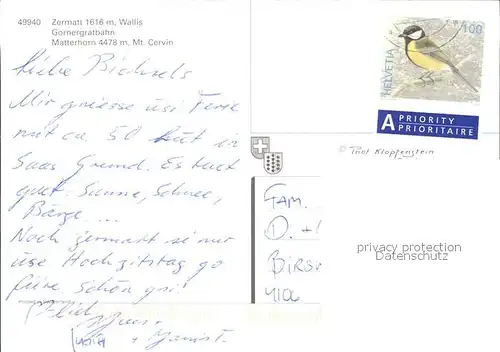 49940 Zermatt 1616 m, Wallis
Gornergratbahn
Matterhorn 4478 m, Mt. Cervin
Liebe Bichsels
Mir gniesse üsi Ferie
mit ca. 50 Lüt in
Saas Grund. Es tuet
guet. Sunne, Schnee,
Bärge ...
Noch Zermatt si mir
üse Hochzitstag go
fiire. Schön gsi!
HELVETIA 100
A PRIORITY
PRIORITAIRE
© Thol Klopfenstein
FAM.
D. +
BIRS
4106
privacy protection
Datenschutz